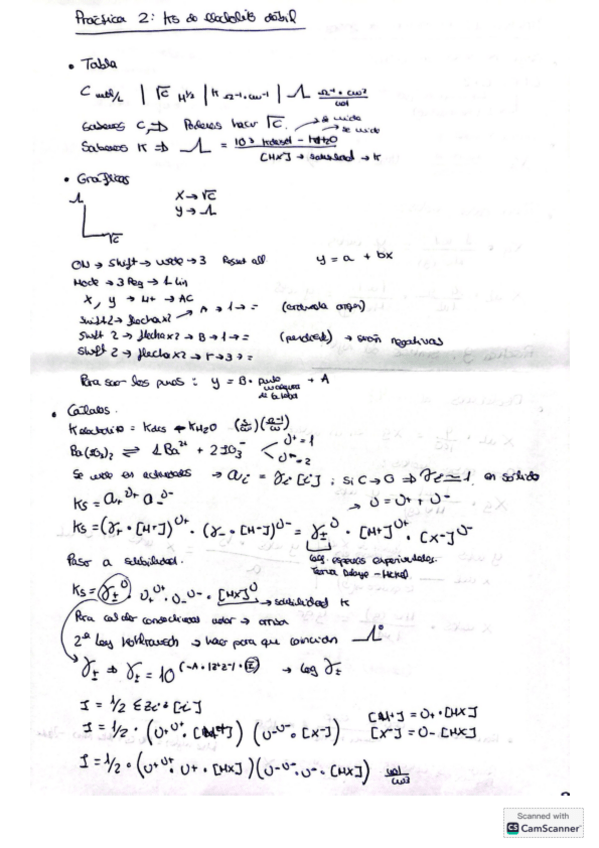 Práctica 2: Ks de electrolito débil
• Tabla
C mol/L | √C M^1/2 | K Ω⁻¹·cm⁻¹ | Λ Ω⁻¹·cm²/mol
Sabemos C, ⇒ Podemos hacer √C. → se mide
→ se mide
Sabemos K ⇒ Λ = 10³ Kdesol - KH2O / [MX] → solubilidad → K
• Gráficas
Λ
√C
X → √C
y → Λ
ON → Shift → mode → 3 Reset all
y = a + bx
Mode → 3 Reg → 1 Lin
X, y → M+ → AC
Shift 2 → flecha x2 → A → 1 → = (ordenada origen)
Shift 2 → flecha x2 → B → 1 → = (pendiente) → serán negativas
Shift 2 → flecha x2 → r → 3 → =
Para sacar los puntos: y = B · punto + A
de la tabla
• Cálculos.
K electrolito = Kdis + KH2O
Ba(IO3)2 ⇌ 1Ba²⁺ + 2IO3⁻
υ⁺ = 1
υ⁻ = 2
Se usan las actividades → ai = γi [i] ; si C → 0 ⇒ γi ≈ 1 en sólido
Ks = a+^υ+ a-^υ-
→ υ = υ+ + υ-
Ks = (γ+ · [M+])^υ+ · (γ- · [M-])^υ- = γ±^υ · [M+]^υ+ · [X-]^υ-
Paso a solubilidad.
Teoría Debye-Hückel
Ks = γ±^υ · υ+^υ+ · υ-^υ- · [MX]^υ → solubilidad K
Para calcular conductividad molar → arriba
2ª Ley Kohlrausch → hacer para que coincidan Λ°
γ± ⇒ γ± = 10^(-A·|z+z-|·√I) → log γ±
I = 1/2 Σzi² [i]
I = 1/2 · (υ+^υ+ · [M+]) (υ-^υ- · [X-])
[M+] = υ+ · [MX]
[X-] = υ- [MX]
I = 1/2 · (υ+^υ+ · υ+ · [MX]) (υ-^υ- · υ- · [MX])
Scanned with
CS CamScanner